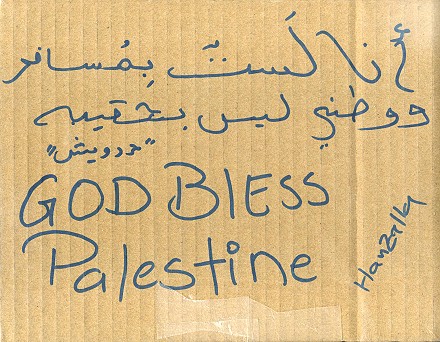 أنا لَستُ بِمُسافر
ووطني ليس بحقيبه
"درويش"
GOD BLESS
Palestine
Hanzalla